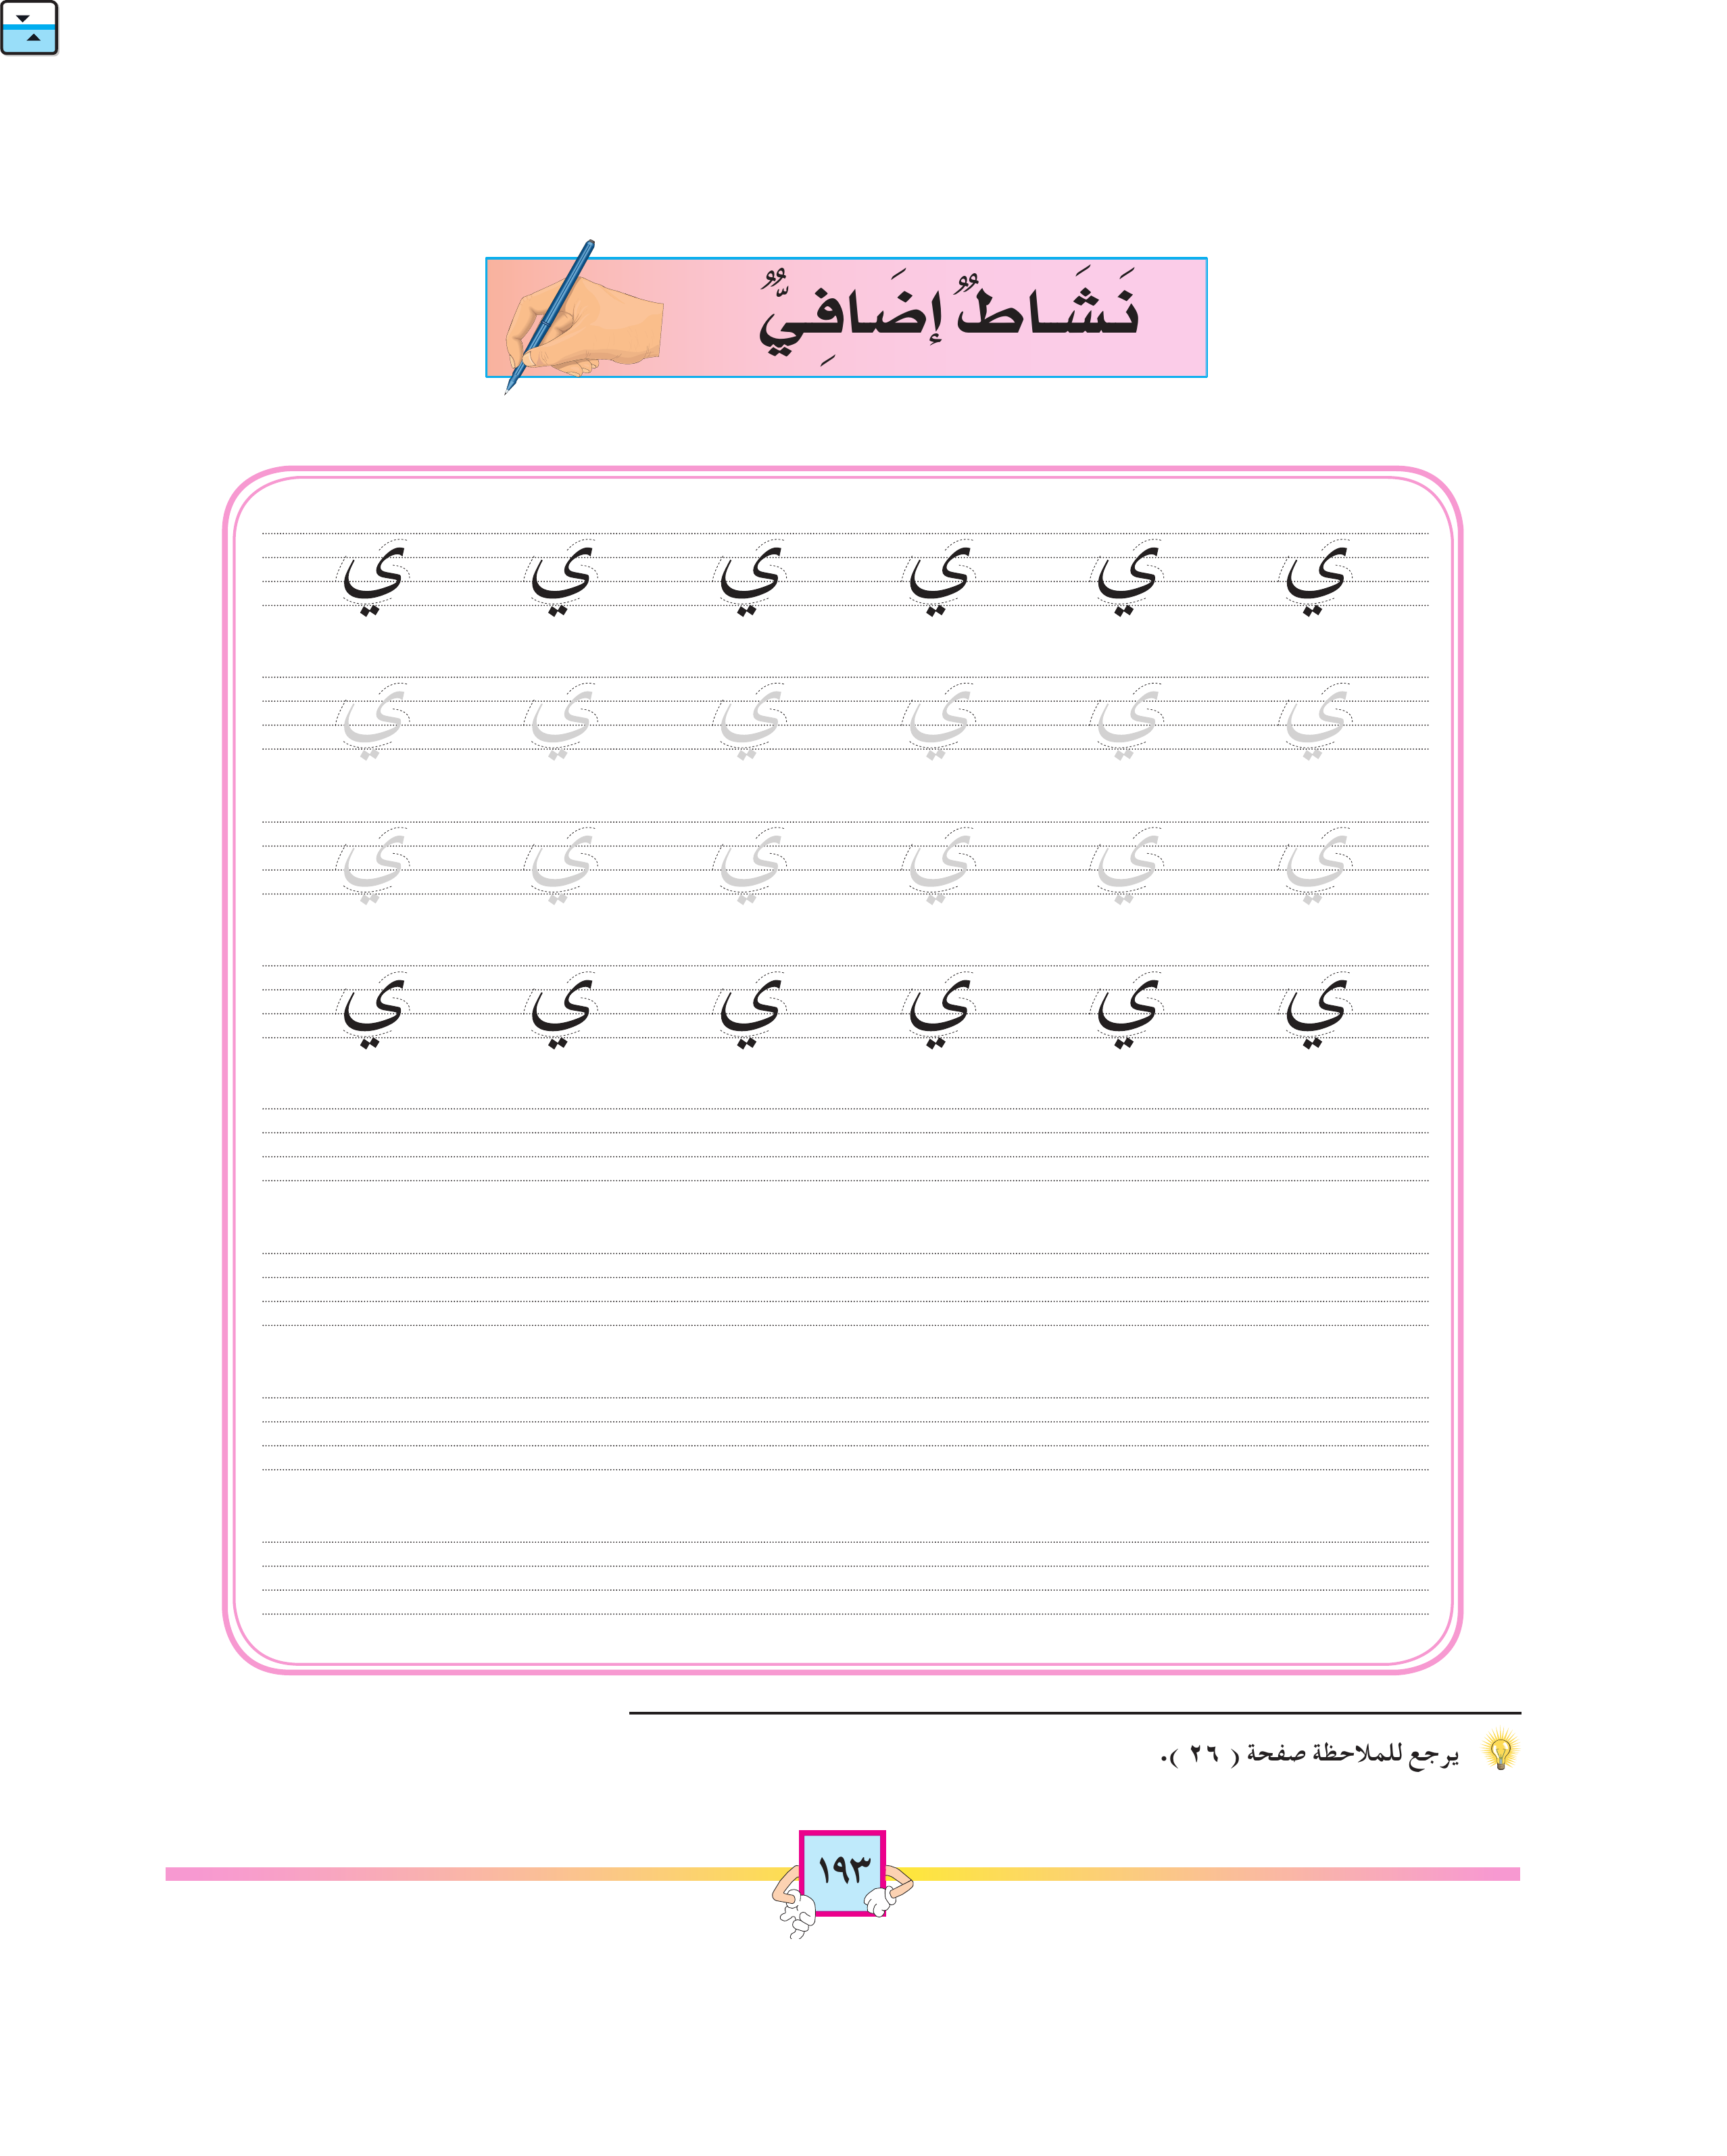 نَشَاطٌ إضَافِيٌّ
ي ي ي ي ي ي
ي ي ي ي ي ي
ي ي ي ي ي ي
ي ي ي ي ي ي
يرجع للملاحظة صفحة ( ٢٦ ).
١٩٣